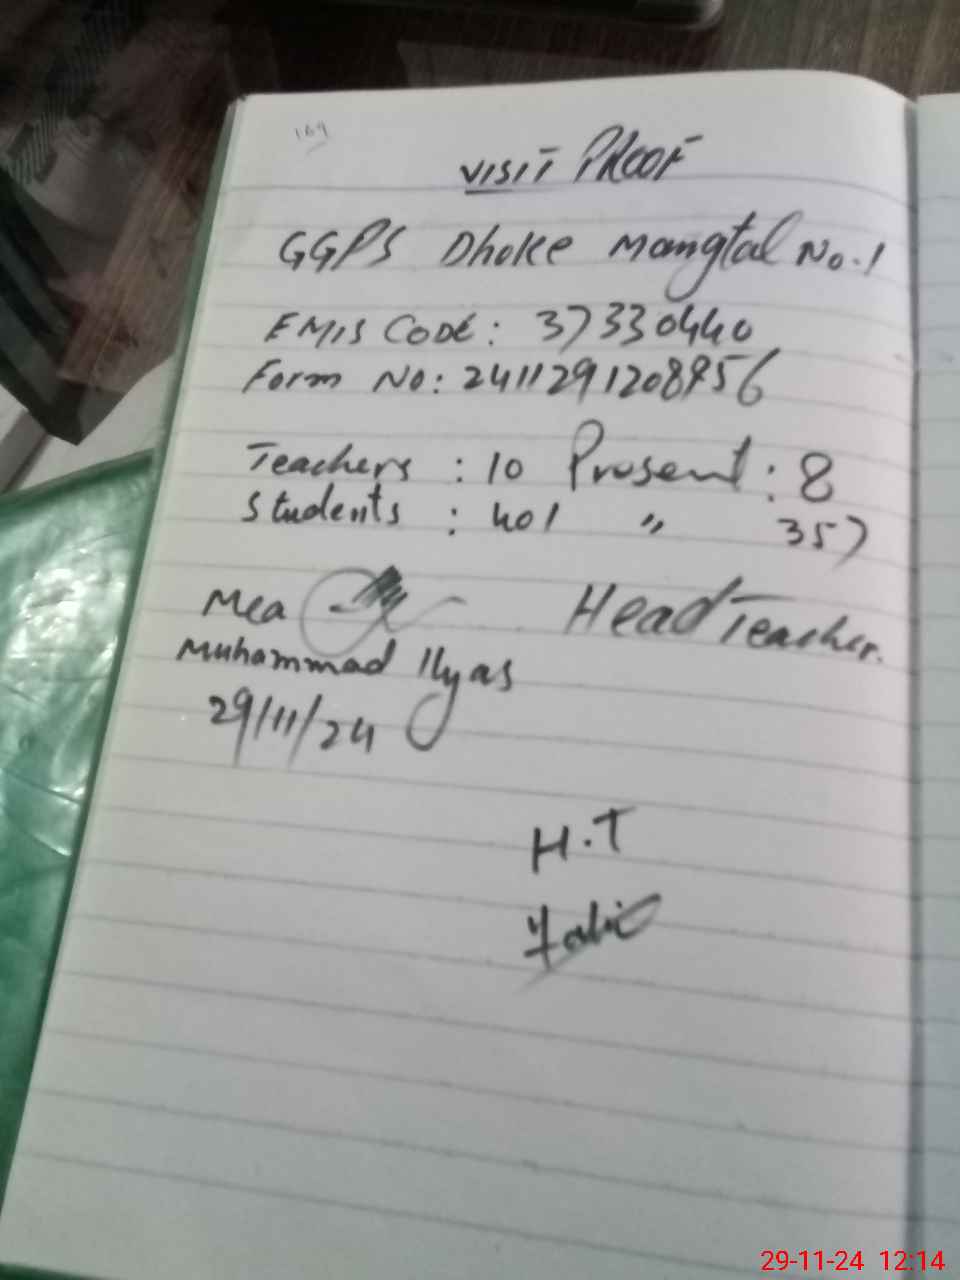 169
VISIT PROOF
GGPS Dhoke Mangtal No.1
EMIS CODE: 37330440
Form No: 2411291208956
Teachers : 10 Present : 8
Students : 401 " 357
Mea Head Teacher.
Muhammad Ilyas
29/11/24
H.T
29-11-24 12:14